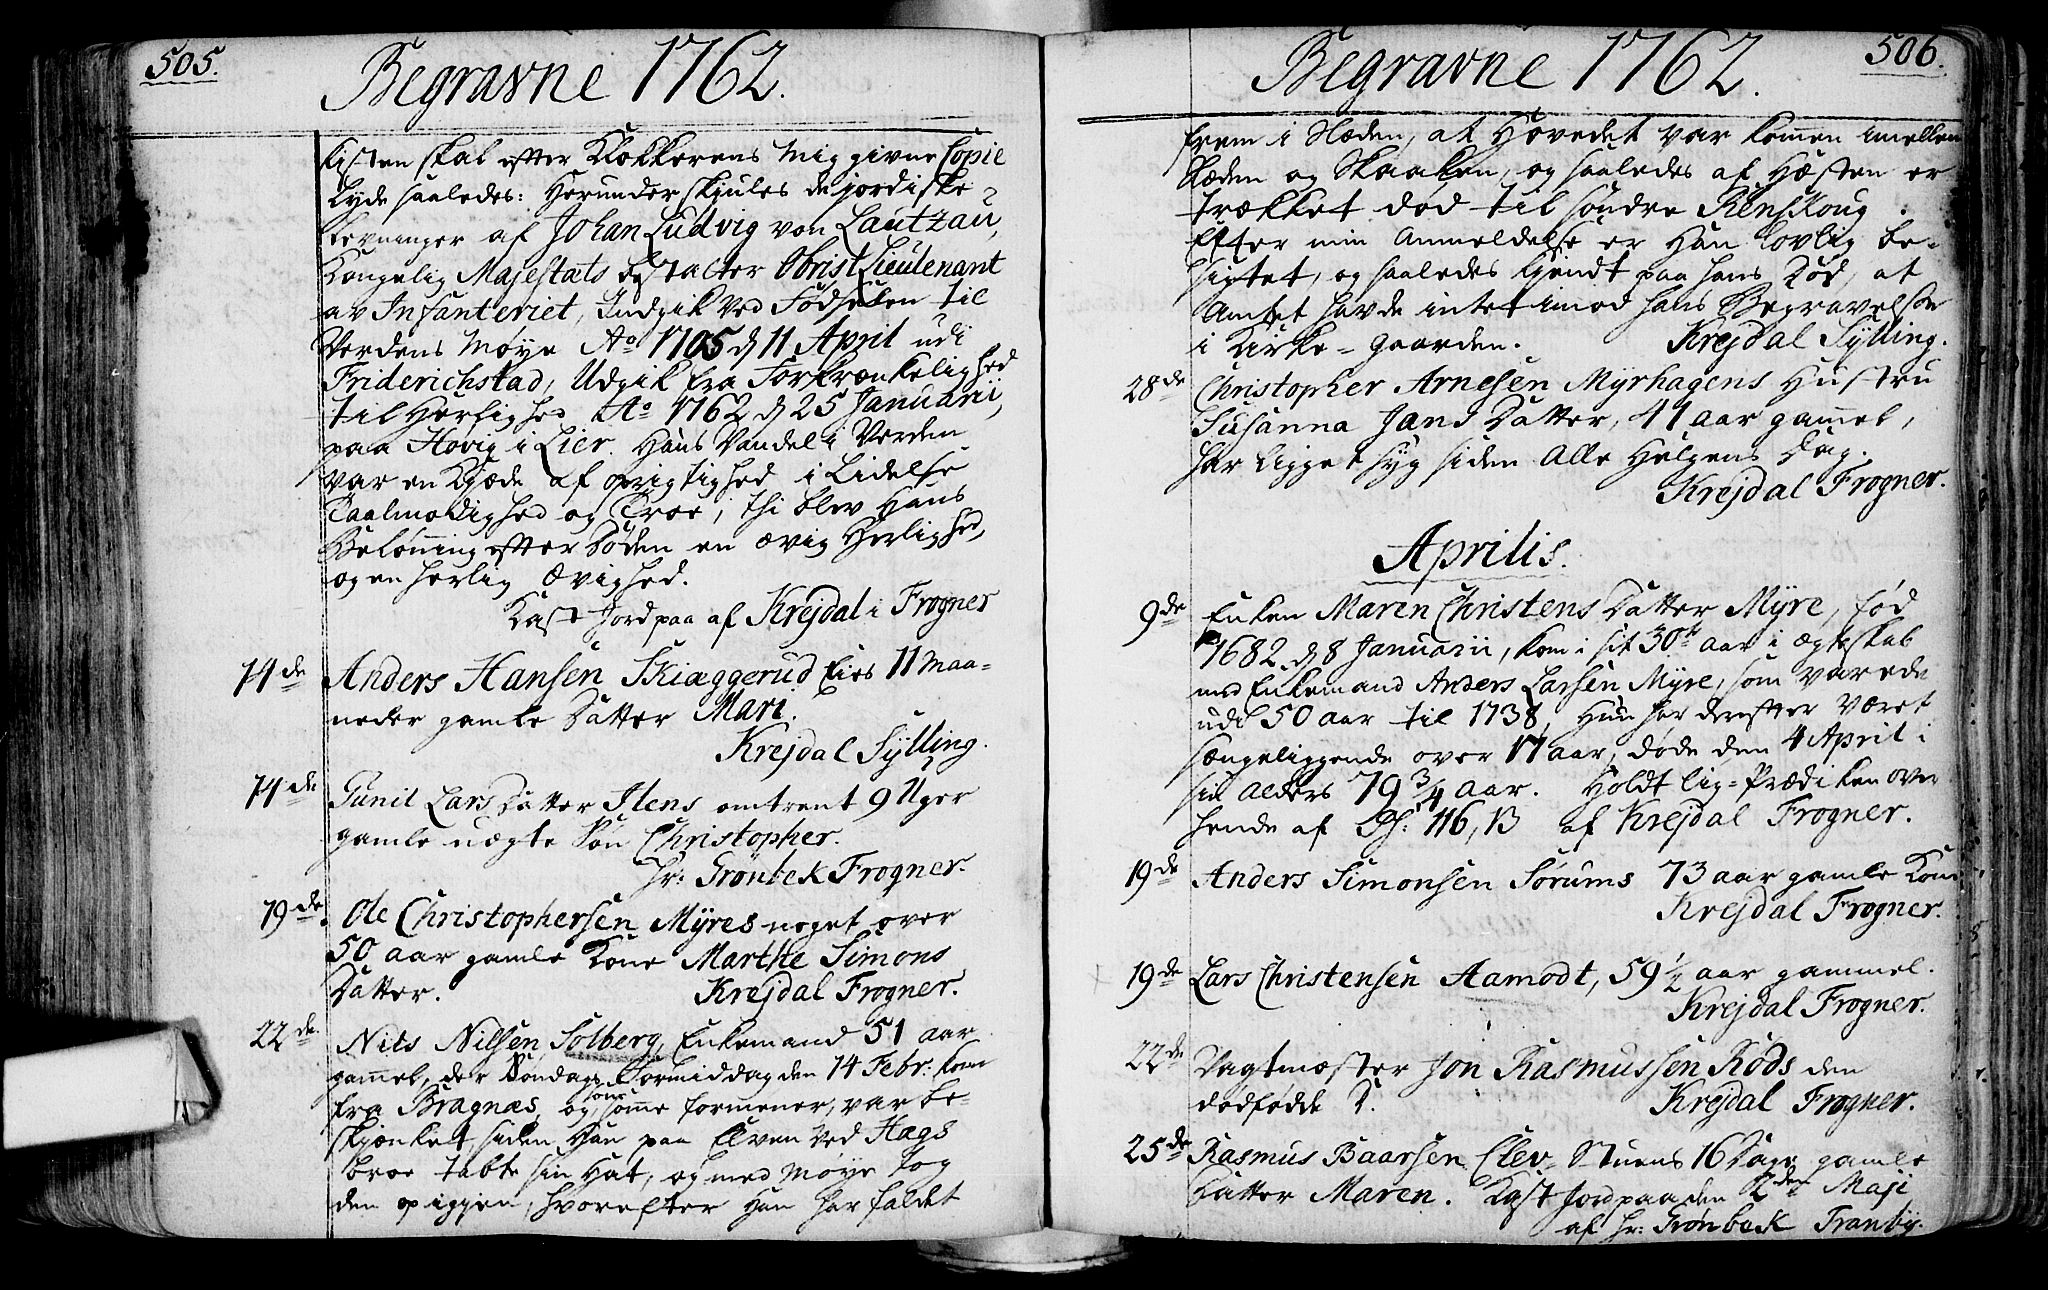 505.
Begravne 1762.
Kisten skal efter Klokkerens mig givne Copie
lyde saaledes: Herunder skjules de jordiske
levninger af Johan Ludvig von Lautzau,
Kongelig Majestæts bestalter Obrist Lieutenant
av Infanteriet, Indgik ved Fødselen til
Verdens Møye Ao 1705 d 11 April udi
Friderichstad, Udgik fra Forkrænkelighed
til Herlighed Ao 1762 d 25 Januarii,
paa Hovig i Lier. Hans Vandel i Verden
var en Kjæde af oprigtighed i Lidelse
Taalmodighed og Troe; thi blev Hans
Belønning efter Døden en ævig Herlighed,
og en herlig Ævighed.
Kast Jord paa af Krejdal i Frogner
14de Anders Hansen Skiæggerud Eies 11 maa=
neder gamle Datter Mari.
Krejdal Sylling.
14de Gunil Lars Datter Ilens omtrent 9 Uger
gamle uægte Søn Christopher.
Hr: Grönbek Frogner.
19de. Ole Christophersen Myres noget over
50 aar gamle Kone Marthe Simons
Datter. Krejdal Frogner.
22de Nils Nilsen Solberg, Enkemand 51 aar
gamel, der Søndags Formiddag den 14 Febr: kom
fra Bragnæs, og, som somme formener, var be=
skjænket, siden Han paa Elven ved Hægs
broe tabte sin Hat, og med møye tog
den op igjen, hvorefter Han har faldet
506.
Begravne 1762.
frem i Slæden, at Hovedet var komen imellem
Slæden og Skaaken, og saaledes af Hæsten er
trækket død til søndre Renskoug.
Efter min Anmeldelse er Han lovlig be=
sigtet, og saaledes kjendt paa hans Død, at
Amtet havde intet imod hans Begravelse
i Kirke=gaarden. Krejdal Sylling.
28de Christopher Arnesen Myrhagens Hustru
Susanna Jans Datter, 41 aar gamel,
har ligget syg siden Alle Helgens Dag.
Krejdal Frogner.
Aprilis.
9de Enken Maren Christens Datter Myre, fød
1682 d 8 Januarii, kom i sit 30te aar i ægteskab
med Enkemand Anders Larsen Myre, som varede
udi 50 aar til 1738, Hun har derefter været
sængeliggende over 17 aar, døde den 4 April i
sin Alders 79 3/4 aar. Holdt Lig=Prædiken over
hende af Ps: 116, 13 af Krejdal Frogner.
19de Anders Simonsen Sørums 73 aar gamle Kone
Krejdal Frogner.
19de Lars Christensen Aamodt, 59 1/2 aar gammel.
Krejdal Frogner.
22de Vagtmæster Jon Rasmussen Röds den
dødfødde D. Krejdal Frogner.
25de Rasmus Baarsen Clev=Stuens 16 Dage gamle
Datter Maren. Kast Jord paa den 2den Maji
af Hr: Grönbek Tranby.